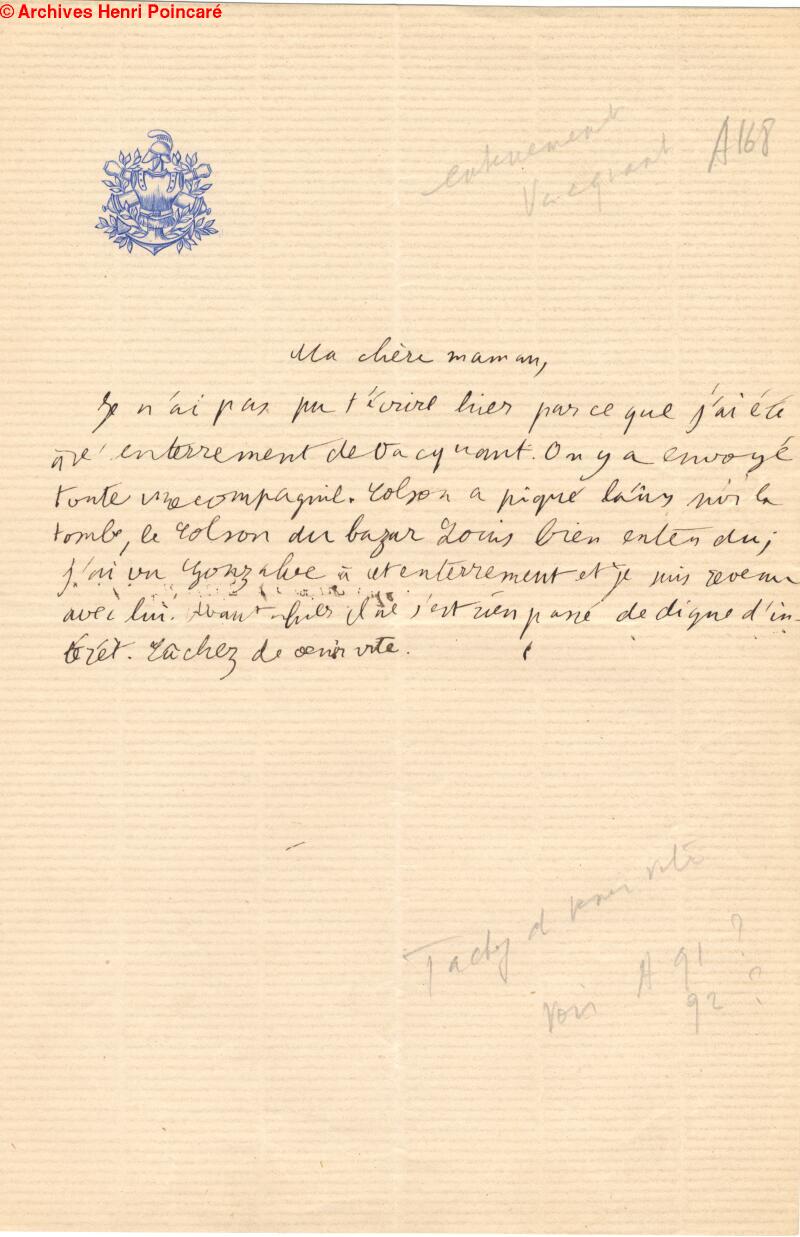 © Archives Henri Poincaré
enterrement A168
Vacquant
Ma chère maman,
Je n'ai pas pu t'écrire hier parce que j'ai été
à l'enterrement de Vacquant. On y a envoyé
toute une compagnie. Colson a piqué laïus sur la
tombe, le Colson du bazar Louis bien entendu;
j'ai vu Gonzalve à cet enterrement et je suis revenu
avec lui. Avant-hier il ne s'est rien passé de digne d'in-
térêt. Tâchez de venir vite.
Tachez d venir vite
voir A 91 ?
92 ?